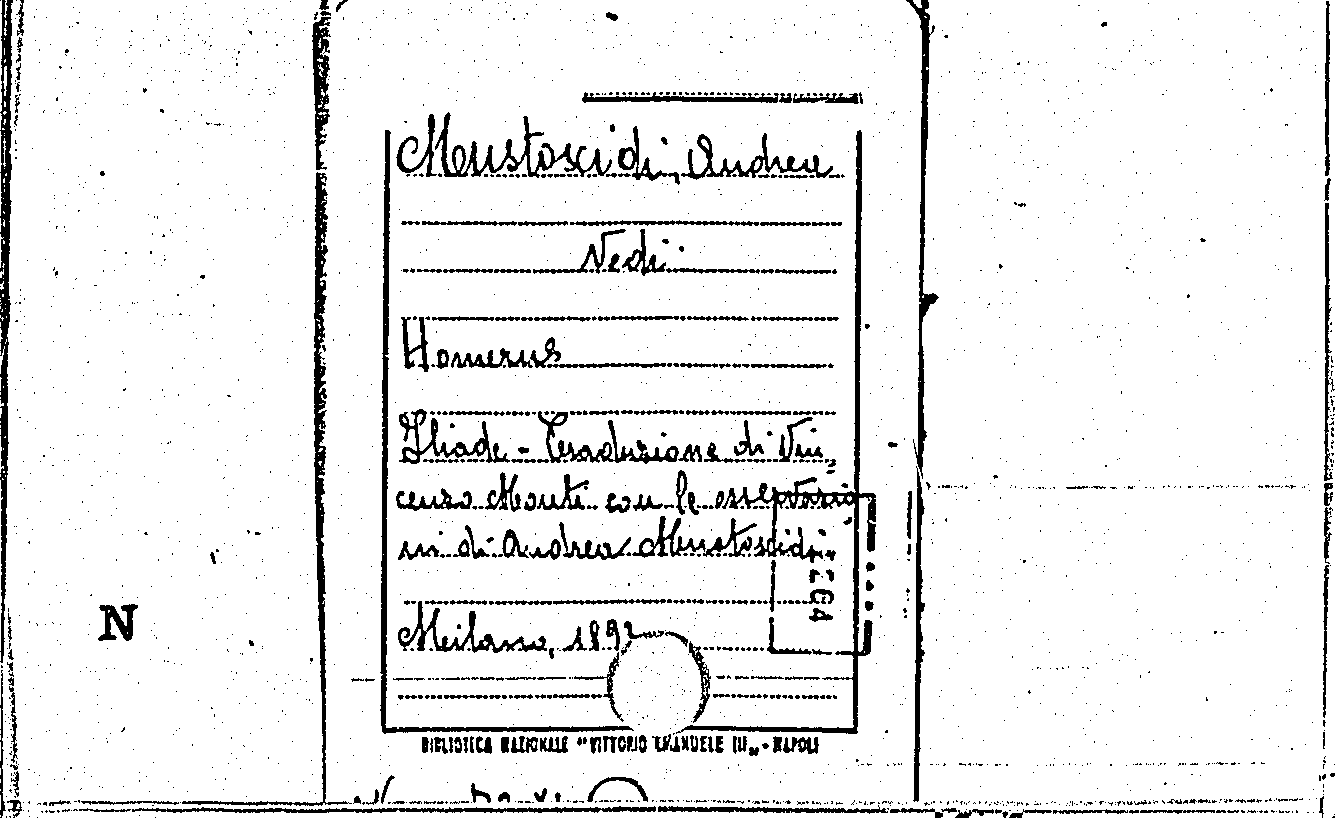 Mustoxidi, Andrea
Vedi:
Homerus
Iliade - Traduzione di Vin=
cenzo Monti con le osservazio=
ni di Andrea Mustoxidi.
Milano, 1892
N
BIBLIOTECA NAZIONALE "VITTORIO EMANUELE III„ - NAPOLI